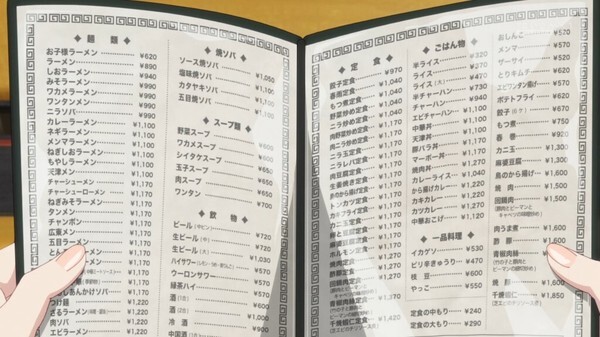 ◆ 麺 類 ◆
お子様ラーメン ¥620
ラーメン ¥890
しおラーメン ¥940
みそラーメン ¥990
ワカメラーメン ¥990
ワンタンメン ¥990
ニラソバ ¥990
カレーラーメン ¥1,100
ネギラーメン ¥1,100
メンマラーメン ¥1,100
ねぎしおラーメン ¥1,100
もやしラーメン ¥1,100
天津メン ¥1,100
チャーシューメン ¥1,170
チャーシューローメン ¥1,170
ねぎみそラーメン ¥1,170
タンメン ¥1,170
チャンポン ¥1,170
広東メン ¥1,170
五目ラーメン ¥1,170
¥1,170
¥1,170
あんかけソバ ¥1,170
つけ麺 ¥1,170
ざるラーメン ¥1,170
肉ソバ ¥1,170
エビラーメン
◆ 焼ソバ ◆
ソース焼ソバ ¥1,050
塩味焼ソバ ¥1,100
カタヤキソバ ¥1,100
五目焼ソバ ¥1,100
◆ スープ類 ◆
野菜スープ ¥600
ワカメスープ ¥600
シイタケスープ ¥650
玉子スープ ¥650
肉スープ ¥650
ワンタン ¥700
◆ 飲 物 ◆
ビール ¥720
生ビール (中) ¥720
生ビール (大) ¥1,030
ハイサワー ¥570
ウーロンサワー ¥570
緑茶ハイ ¥570
酒
酒
冷酒
中国酒
◆ 定 食 ◆
餃子定食 ¥970
春雨定食 ¥1,040
もつ煮定食 ¥1,040
野菜炒め定食 ¥1,040
ニラ炒め定食 ¥1,040
肉野菜炒め定食 ¥1,170
肉ニラ炒め定食 ¥1,170
ニラ玉定食 ¥1,170
ニラレバ定食 ¥1,170
肉豆腐定食 ¥1,170
生姜焼き定食 ¥1,170
トンカツ定食 ¥1,170
カキフライ定食 ¥1,170
カニ玉定食 ¥1,170
麻婆豆腐定食 ¥1,170
ホルモン定食 ¥1,170
焼肉定食 ¥1,170
回鍋肉定食 ¥1,170
酢豚定食 ¥1,170
青椒肉絲定食 ¥1,170
干焼蝦仁定食
◆ ごはん物 ◆
半ライス ¥320
ライス
ライス (大) ¥470
半チャーハン ¥730
チャーハン ¥940
エビチャーハン ¥1,100
中華丼 ¥1,100
天津丼 ¥1,100
豚バラ丼 ¥1,170
マーボー丼 ¥1,170
焼肉丼 ¥1,170
カレーライス ¥1,040
から揚げカレー ¥1,170
カキカレー ¥1,170
カツカレー ¥1,170
中華おこげ ¥1,170
◆ 一品料理 ◆
イカゲソ ¥530
ピリ辛きゅうり ¥470
枝豆 ¥600
やっこ ¥550
定食の中もり ¥240
定食の大もり ¥290
おしんこ ¥570
メンマ ¥570
ザーサイ ¥520
とりキムチ ¥620
エビワンタン揚げ
ポテトフライ ¥620
餃子 (6ケ) ¥670
もつ煮 ¥750
春巻 ¥920
カニ玉 ¥1,300
麻婆豆腐 ¥1,300
鳥のから揚げ ¥1,300
焼肉 ¥1,300
回鍋肉 ¥1,300
肉うま煮 ¥1,600
酢豚 ¥1,600
青椒肉絲 ¥1,600
焼豚
干焼蝦仁 ¥1,850